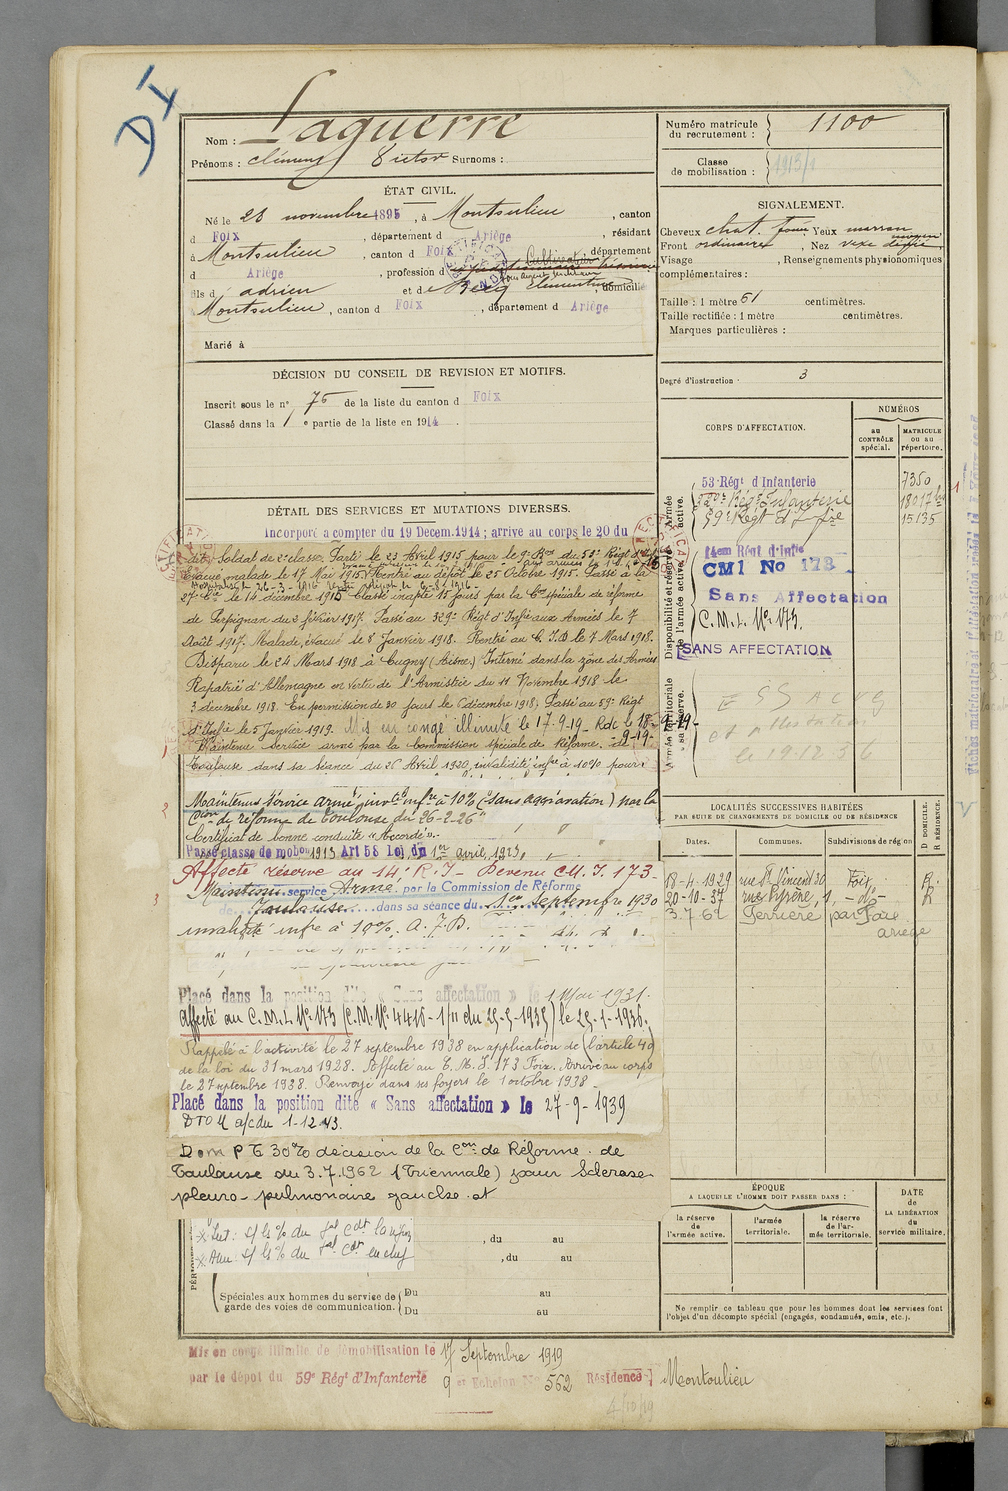 D I
Nom : Laguerre
Prénoms : Clément Victor Surnoms :
Numéro matricule
du recrutement : 1100
Classe
de mobilisation : 1913/1
ÉTAT CIVIL.
Né le 28 novembre 1895, à Montoulieu, canton
d Foix, département d Ariège, résidant
à Montoulieu, canton d Foix, département
d Ariège, profession d Cultivateur
fils d adrien et de Bécq Clémentine, domicilié
Montoulieu, canton d Foix, département d Ariège
Marié à
SIGNALEMENT.
Cheveux chat. foncé Yeux marron
moyen
Front ordinaire, Nez vexe
Visage , Renseignements physionomiques
complémentaires :
Taille : 1 mètre 61 centimètres.
Taille rectifiée : 1 mètre centimètres.
Marques particulières :
Degré d'instruction : 3
DÉCISION DU CONSEIL DE REVISION ET MOTIFS.
Inscrit sous le n° 76 de la liste du canton d Foix
Classé dans la 1 e partie de la liste en 1914.
CORPS D'AFFECTATION.
NUMÉROS
au
CONTRÔLE
spécial.
MATRICULE
ou au
répertoire.
Disponibilité et réserve de l'armée active.
Armée active.
53e Régt d'Infanterie 7350
329e Régt Infanterie 18017 bis
59e Régt d'Infie 15135
14em Régt d'Infie
CM1 No 173
Sans Affectation
C.M.I. No 173.
SANS AFFECTATION
Armée territoriale
et sa réserve.
le 19.12.36
DÉTAIL DES SERVICES ET MUTATIONS DIVERSES.
Incorporé a compter du 19 Decem.1914 ; arrive au corps le 20 du
dit Soldat de 2e classe. Parti le 23 Avril 1915 pour le 9e Bon du 53e Régt d'Infie
Évacué malade le 17 Mai 1915. Rentré au dépôt le 25 Octobre 1915. Passé à la
27e Cie le 14 décembre 1915 Classé inapte 15 jours par la Con spéciale de réforme
de Perpignan du 3 février 1917. Passé au 329e Régt d'Infie aux Armées le 7
Août 1917. Malade, évacué le 8 Janvier 1918. Rentré au C.I.D. le 7 Mars 1918.
Disparu le 24 Mars 1918 à Cugny (Aisne.) Interné dans la zône des Armées
Rapatrié d'Allemagne en vertu de l'Armistice du 11 Novembre 1918 le
3 decembre 1918. En permission de 30 jours le 6 décembre 1918. Passé au 59e Régt
d'Infie le 5 Janvier 1919. Mis en congé illimité le 17.9.19. Rdc le 18-9-19-
Maintenu service armé par la Commission spéciale de Réforme de
Toulouse dans sa séance du 26 Avril 1920, invalidité infre à 10% pour :
Maintenu Service armé, invté infre à 10% (sans aggravation) par la
Cion de réforme de Toulouse du 26-2-26"
Certificat de bonne conduite "Accordé".
Passé classe de mobon 1913 Art 58 Loi du 1er avril 1923.
Affecté réserve au 14e R.I - Devenu CM.I. 173.
Maintenu service Armé par la Commission de Réforme
de Toulouse dans sa séance du 1er Septembre 1930
invalidité infre à 10%.
Placé dans la position dite « Sans affectation » le 1 Mai 1931.
Affecté au C.M.I. No 173 (C.M. No 4416-1/11 du 25-5-1935) le 25-1-1936.
Rappelé à l'activité le 27 septembre 1938 en application de (l'article 40
de la loi du 31 mars 1928. Affecté au C.M.I. 173 Foix. Arrivé au corps
le 27 septembre 1938. Renvoyé dans ses foyers le 1 octobre 1938 -
Placé dans la position dite « Sans affectation » le 27-9-1939
a/c du 1-12-43.
P T 30% décision de la Con de Réforme de
Toulouse du 3.7.1962 (Triennale) pour Sclérose
pleuro-pulmonaire gauche et
LOCALITÉS SUCCESSIVES HABITÉES
PAR SUITE DE CHANGEMENTS DE DOMICILE OU DE RÉSIDENCE
Dates. Communes. Subdivisions de région
D DOMICILE. R RÉSIDENCE.
18-4-1929 rue St Vincent 30 Foix R
20-10-37 rue Pyrène, 1, -do- R
3.7.62 Ferrière par Foix
ariège
ÉPOQUE
A LAQUELLE L'HOMME DOIT PASSER DANS :
la réserve
de
l'armée active.
l'armée
territoriale.
la réserve
de l'ar-
mée territoriale.
DATE
de
LA LIBÉRATION
du
service militaire.
, du au
, du au
Spéciales aux hommes du service de
garde des voies de communication.
Du au
Du au
Ne remplir ce tableau que pour les hommes dont les services font
l'objet d'un décompte spécial (engagés, condamnés, omis, etc.).
Mis en congé illimité de démobilisation le 17 Septembre 1919
par le dépôt du 59e Régt d'Infanterie 9 e Echelon No 562 Résidence : Montoulieu
4/10/19